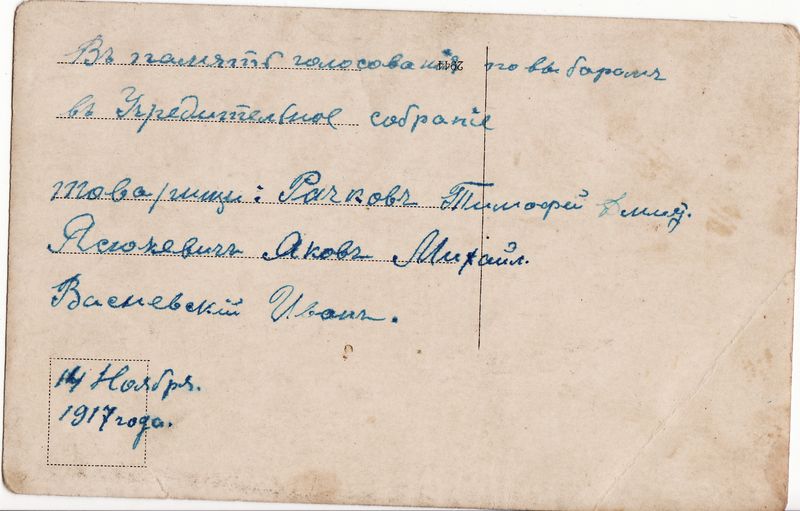 Въ память голосования по выборамъ
2944
въ Учредительное собрание
товарищи: Рачковъ Тимофей Дмит.
Ясюкевичъ Яковъ Михайл.
Васневскій Иванъ.
14 Ноября.
1917 года.